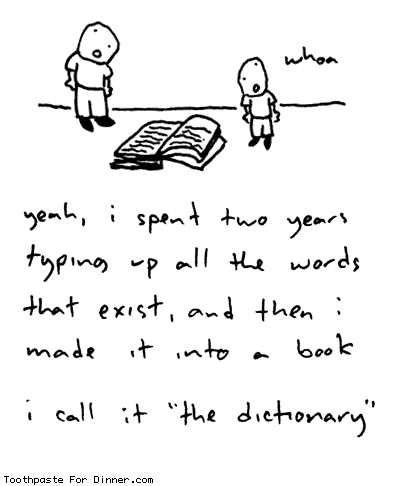 whoa
yeah, i spent two years
typing up all the words
that exist, and then i
made it into a book
i call it "the dictionary"
Toothpaste For Dinner.com